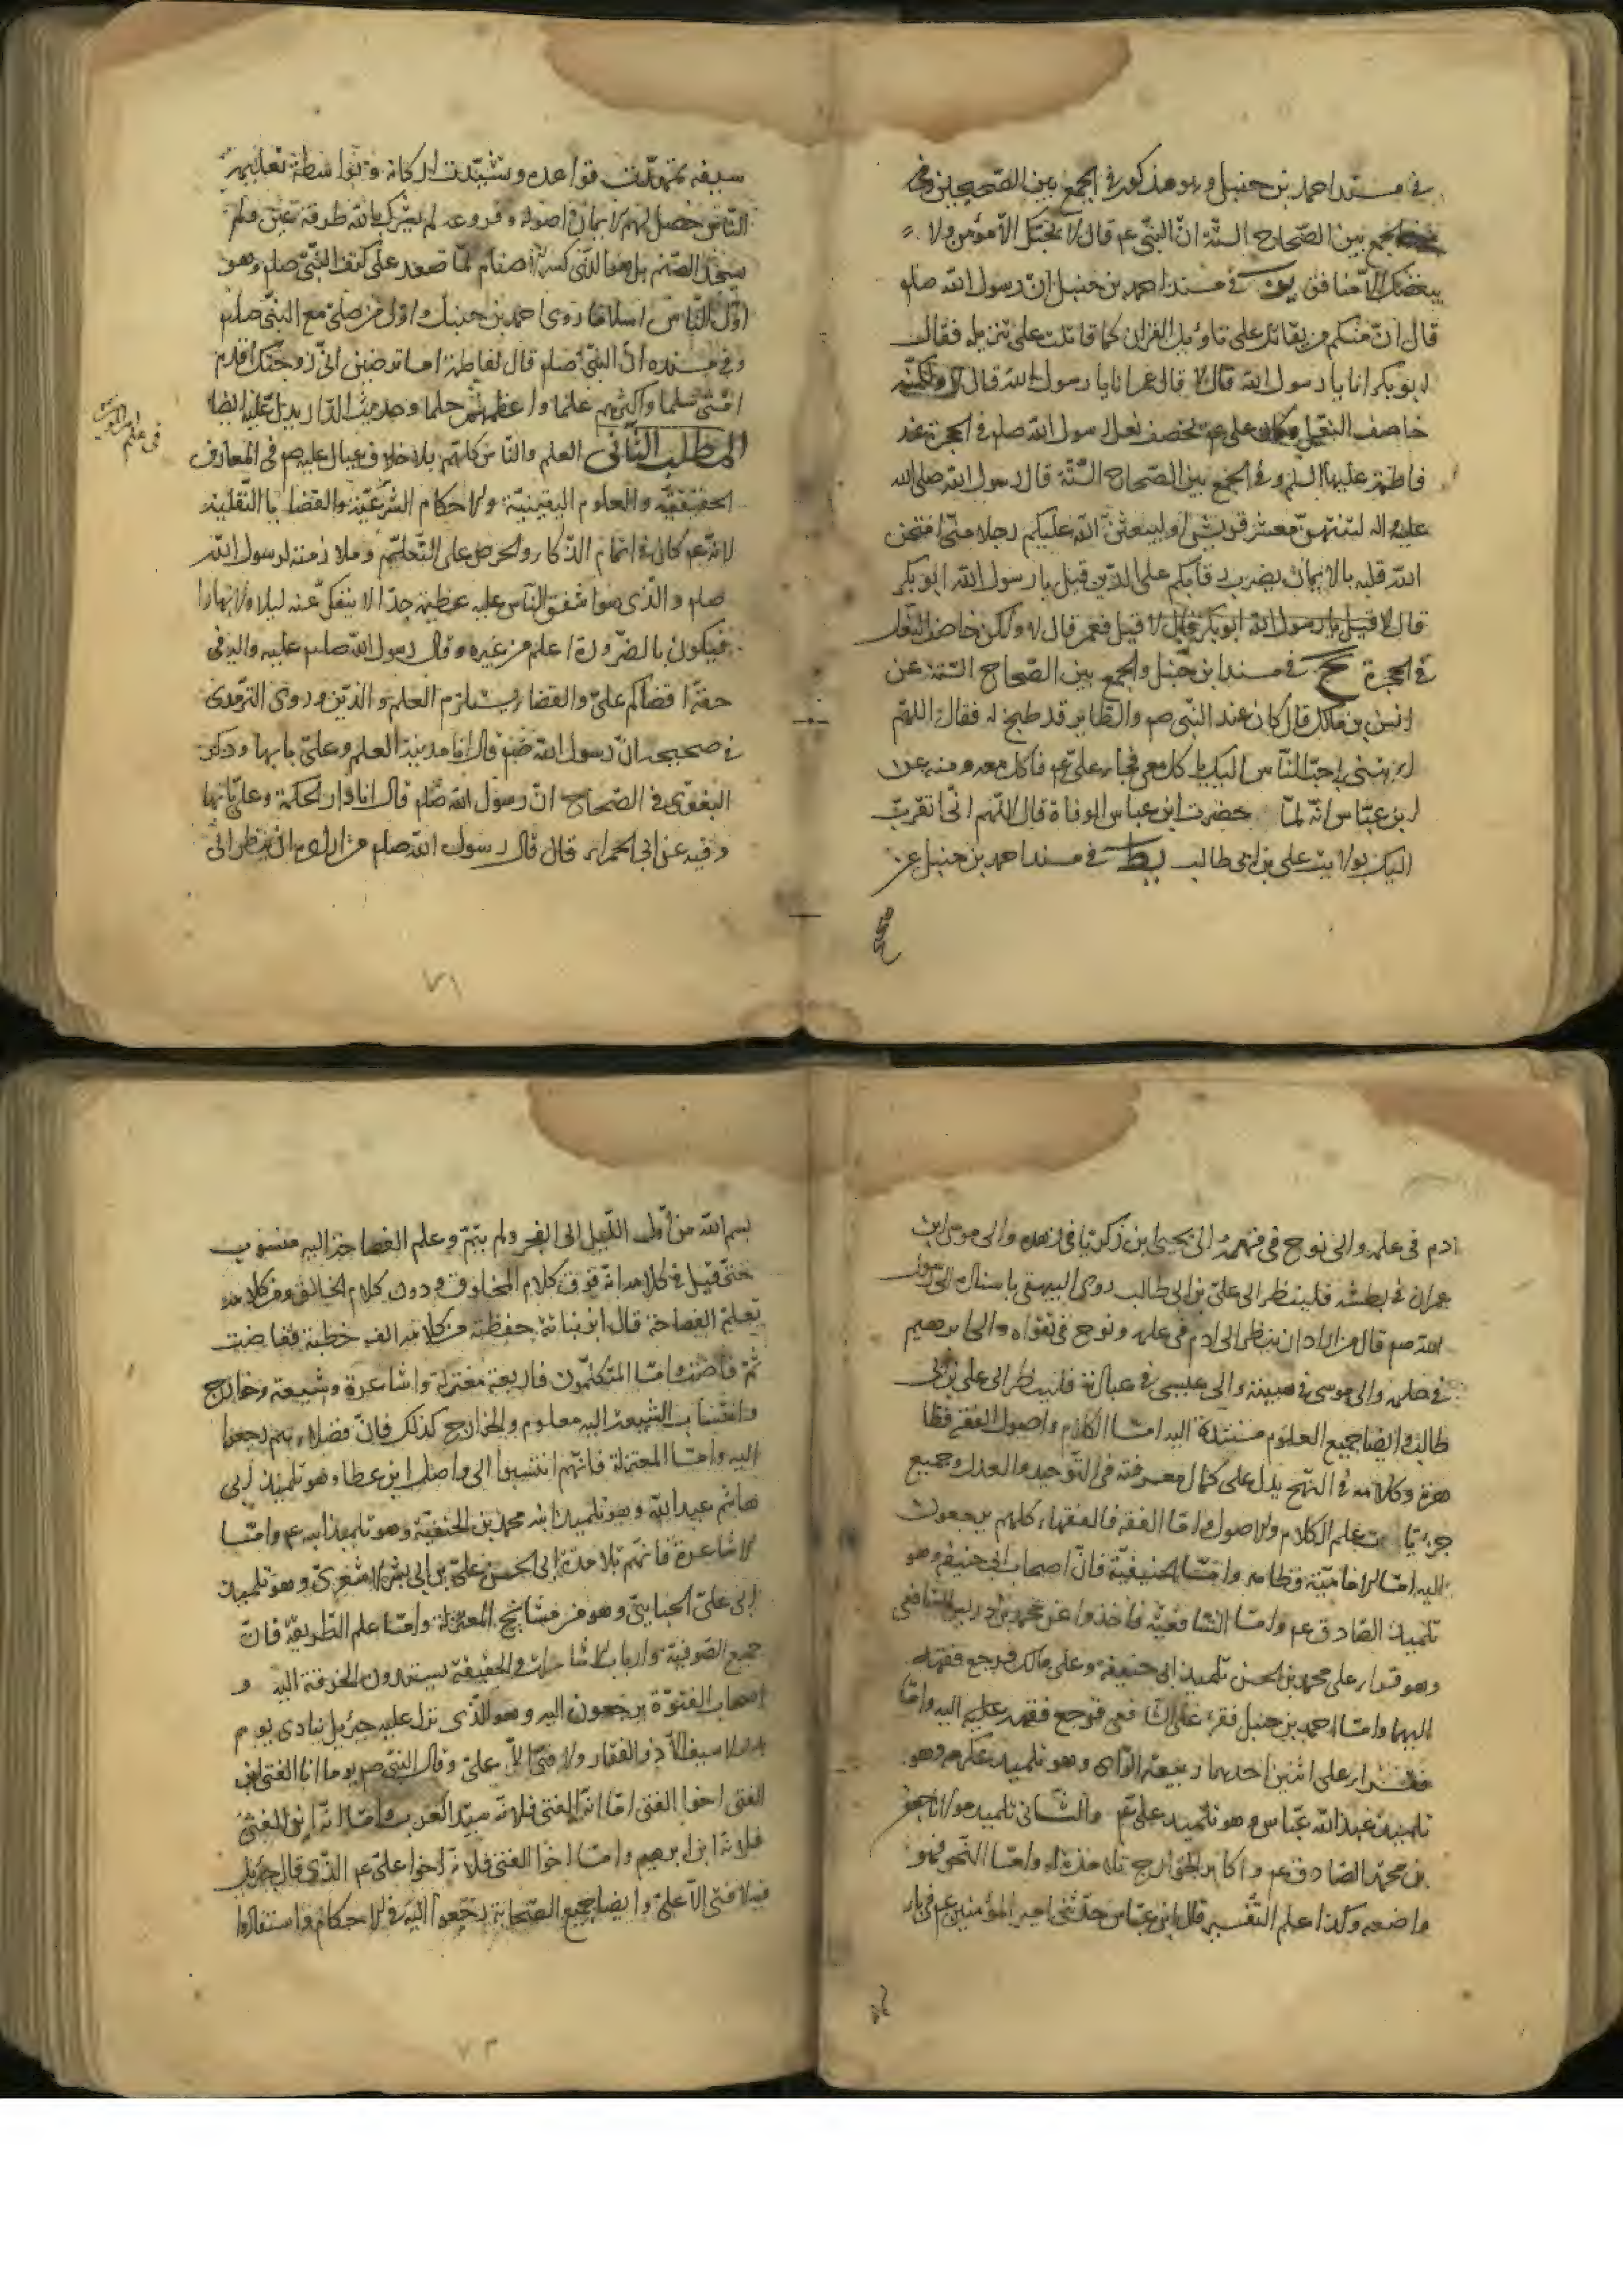 في مسند احمد بن حنبل وهو مذكور في الجمع بين الصحيحين وفي
الجمع بين الصحاح الستة انّ النبي عم قال لا يحبّك الّا مؤمن ولا
يبغضك الّا منافق يز في مسند احمد بن حنبل انّ رسول الله صلم
قال انّ منكم من يقاتل على تاويل القران كما قاتلت على تنزيله فقال
ابو بكر انا يا رسول الله قال لا قال عمر انا يا رسول الله قال لا ولكنّه
خاصف النعل وكان علي عم يخصف نعل رسول الله صلم في الحجرة عند
فاطمة عليها السلم وفي الجمع بين الصحاح الستّة قال رسول الله صلى الله
عليه واله لتنتهنّ معشر قريش او ليبعثنّ الله عليكم رجلا منّي امتحن
الله قلبه بالايمان يضرب رقابكم على الدّين قيل يا رسول الله ابو بكر
قال لا قيل يا رسول الله ابو بكر قال لا قيل فعمر قال لا ولكن خاصف النعل
في الحجرة يح في مسند ابن حنبل والجمع بين الصحاح الستة عن
انس بن مالك قال كان عند النبي صم والطاير قد طبخ له فقال اللهم
ايتني باحبّ النّاس اليك ياكل معي فجاء علي عم فاكل معه ومنه عن
ابن عبّاس انّه لمّا حضرت ابن عباس الوفاة قال اللّهم انّي اتقرّب
اليك بولايت علي بن ابي طالب يط في مسند احمد بن حنبل عن
سيفه تمهّدت قواعده وتشيّدت اركانه وبواسطة تعليمه
النّاس حصل لهم الايمان اصوله وفروعه لم يشرك بالله طرفة عين ولم
يسجد لصنم بل هو الذي كسر الاصنام لمّا صعد على كتف النّبي صلم وهو
اوّل النّاس اسلاما روى احمد بن حنبل انه اوّل من صلّى مع النبي صلم
وفي مسنده انّ النبي صلم قال لفاطمة اما ترضين انّي زوجتك اقدم
امّتي سلما واكثرهم علما واعظمهم حلما وحديث الدّار يدل عليه ايضا
المطلب الثاني العلم والناس كلّهم بلا خلاف عيال عليه صم في المعارف
في علم امير المؤمنين
الحقيقيّة والعلوم اليقينيّة والاحكام الشرعيّة والقضايا النّقلية
لانّه عم كان في اتمام الذّكاء والحرص على التعلّم وملازمته لرسول الله
صلم والّذي هو اشفق النّاس عليه عظيمة جدّا لا ينفكّ عنه ليلا ولا نهارا
فيكون بالضّرورة اعلم من غيره وقال رسول الله صلم عليه واله في
حقّه اقضاكم عليّ والقضاء يستلزم العلم والدّين وروى الترمذي
في صحيحه انّ رسول الله صم قال انا مدينة العلم وعليّ بابها وذكر
البغوي في الصّحاح انّ رسول الله صلم قال انا دار الحكمة وعليّ بابها
وفيه عن ابي الحمراء قال قال رسول الله صلم من اراد ان ينظر الى
٧١
ادم في علمه والى نوح في فهمه والى يحيى ابن زكريّا في زهده والى موسى ابن
عمران في بطشه فلينظر الى عليّ بن ابي طالب روى البيهقي باسناده الى رسول
الله صم قال من اراد ان ينظر الى ادم في علمه ونوح في تقواه والى ابرهيم
في حلمه والى موسى في هيبته والى عيسى في عبادته فلينظر الى علي بن ابي
طالب وايضا جميع العلوم مستندة اليه امّا الكلام واصول الفقه فظا
هر وكلامه في النّهج يدل على كمال معرفته في التّوحيد والعدل وجميع
جزئيّات علم الكلام والاصول وامّا الفقه فالفقهاء كلهم يرجعون
اليه امّا الاماميّة فظاهر وامّا الحنيفيّة فانّ اصحاب ابي حنيفه وهو
تلميذ الصّادق عم وامّا الشّافعيّة فاخذوا عن محمد بن ادريس الشافعي
وهو قراء على محمد بن الحسن تلميذ ابي حنيفه وعلى مالك فرجع فقهه
اليهما وامّا احمد بن حنبل فقرء على الشافعي فرجع فقهه اليه وامّا
مالك فقراء على اثنين احدهما ربيعة الرّاى وهو تلميذ عكرمه وهو
تلميذ عبد الله عبّاس وهو تلميذ علي عم والثّاني تلميذ مولانا جعفر
بن محمّد الصّادق عم واكابر الخوارج تلامذة له وامّا النّحو فهو
واضعه وكذا علم التّفسير قال ابن عبّاس حدّثني امير المؤمنين عم في باء
بسم الله من اوّل اللّيل الى الفجر ولم يتمّ وعلم الفصاحة اليه منسوب
حتى قيل في كلامه انّه فوق كلام المخلوق ودون كلام الخالق ومن كلامه
تعلّم الفصاحة قال ابن نباتة حفظت من كلامه الف خطبة ففاضت
ثمّ فاضت وامّا المتكلّمون فاربعة معتزلة واشاعرة وشيعة وخوارج
وانتساب الشيعة اليه معلوم والخوارج كذلك فانّ فضلاءهم رجعوا
اليه وامّا المعتزلة فانّهم انتسبوا الى واصل ابن عطا وهو تلميذ ابي
هاشم عبد الله وهو تلميذ ابيه محمّد بن الحنفيّة وهو تلميذ ابيه عم وامّا
الاشاعرة فانّهم تلامذة ابي الحسن علي بن ابي بشر الاشعريّ وهو تلميذ
ابي عليّ الجبايي وهو من مشايخ المعتزلة وامّا علم الطّريقة فانّ
جميع الصّوفية وارباب الاشارات والحقيقة يسندون الخرقة اليه و
اصحاب الفتوّة يرجعون اليه وهو الّذي نزل عليه جبرئيل ينادي يوم
بدر لا سيف الّا ذو الفقار ولا فتى الّا علي وقال النبي صم يوما انا الفتى ابن
الفتى اخو الفتى امّا انّه الفتى فلانّه سيّد العرب وامّا انّه ابن الفتى
فلانّه ابن ابرهيم وامّا اخوا الفتى فلانّه اخوا علي عم الذّي قال جبرئيل
فيه لا فتى الّا علي وايضا جميع الصّحابة رجعوا اليه في الاحكام واستفادوا
٧٣